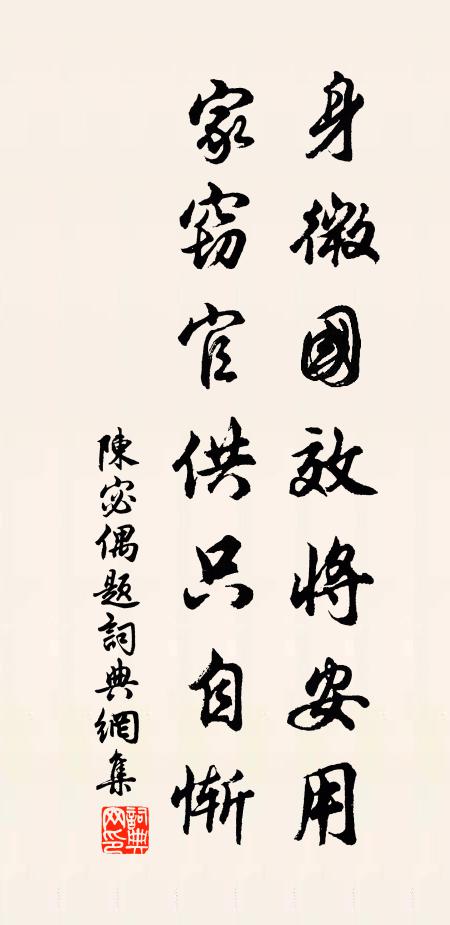 身微國效將安用
家窃官供只自慚
陳宓偶題詞典網集
詞典網印